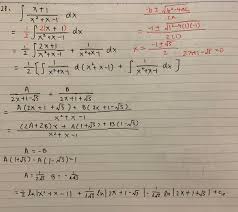 28.
∫ x+1 / x²+x-1 dx
= 1/2 ∫ 2(x+1) / x²+x-1 dx
= 1/2 ∫ 2x+1 / x²+x-1 + 1 / x²+x-1 dx
= 1/2 [∫ 1 / x²+x-1 d(x²+x-1) + ∫ 1 / x²+x-1 dx]
-b ± √b²-4ac / 2a
= -1 ± √1²-4(1)(-1) / 2(1)
x = -1 ± √5 / 2
2x+1-√5 = 0
A / 2x+1-√5 + B / 2x+1+√5
= A(2x+1+√5) + B(2x+1-√5) / x²+x-1
= (2A+2B)x + A(1+√5) + B(1-√5) / x²+x-1
A = -B
A(1+√5) - A(1-√5) = 1
A = 1/2√5 B = -1/2√5
= 1/2 ln|x²+x-1| + 1/2√5 ln|2x+1-√5| - 1/2√5 ln|2x+1+√5| + c